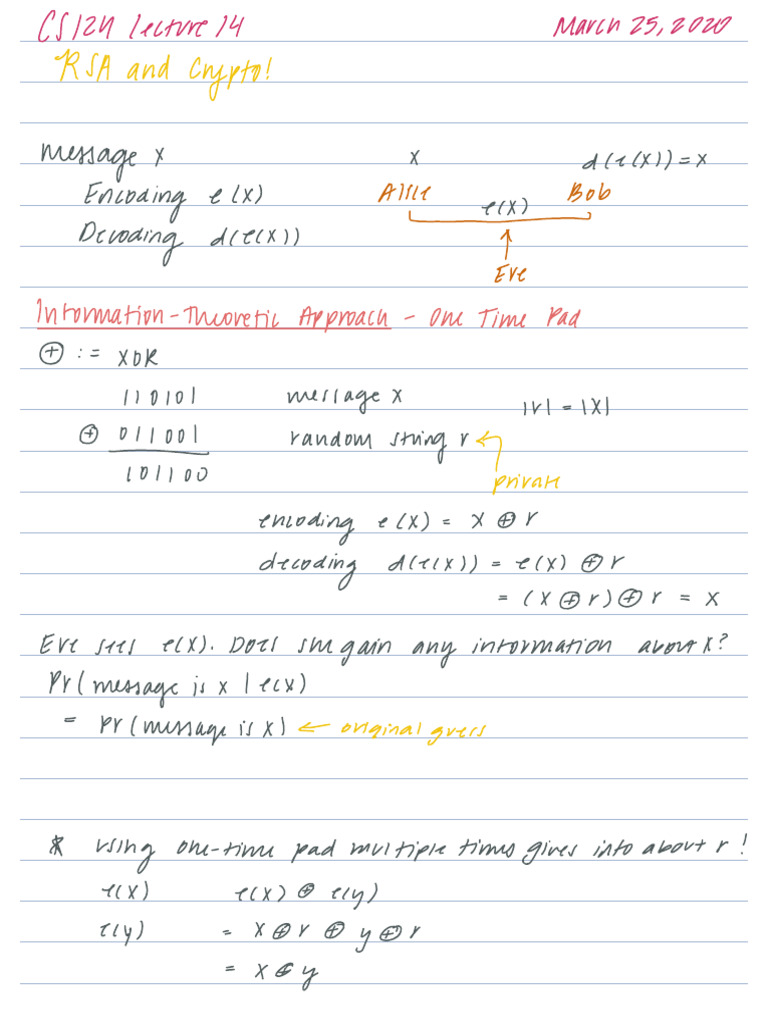 CS124 Lecture 14 March 25, 2020
RSA and Crypto!
message x x d(e(x)) = x
Encoding e(x) Alice e(x) Bob
Decoding d(e(x))
Eve
Information-Theoretic Approach - One Time Pad
⊕ := XOR
110101 message x |r| = |x|
⊕ 011001 random string r ←
101100 private
encoding e(x) = x ⊕ r
decoding d(e(x)) = e(x) ⊕ r
= (x ⊕ r) ⊕ r = x
Eve sees e(x). Does she gain any information about x?
Pr(message is x | e(x)
= Pr(message is x) ← original guess
* using one-time pad multiple times gives info about r!
e(x) e(x) ⊕ e(y)
e(y) = x ⊕ r ⊕ y ⊕ r
= x ⊕ y